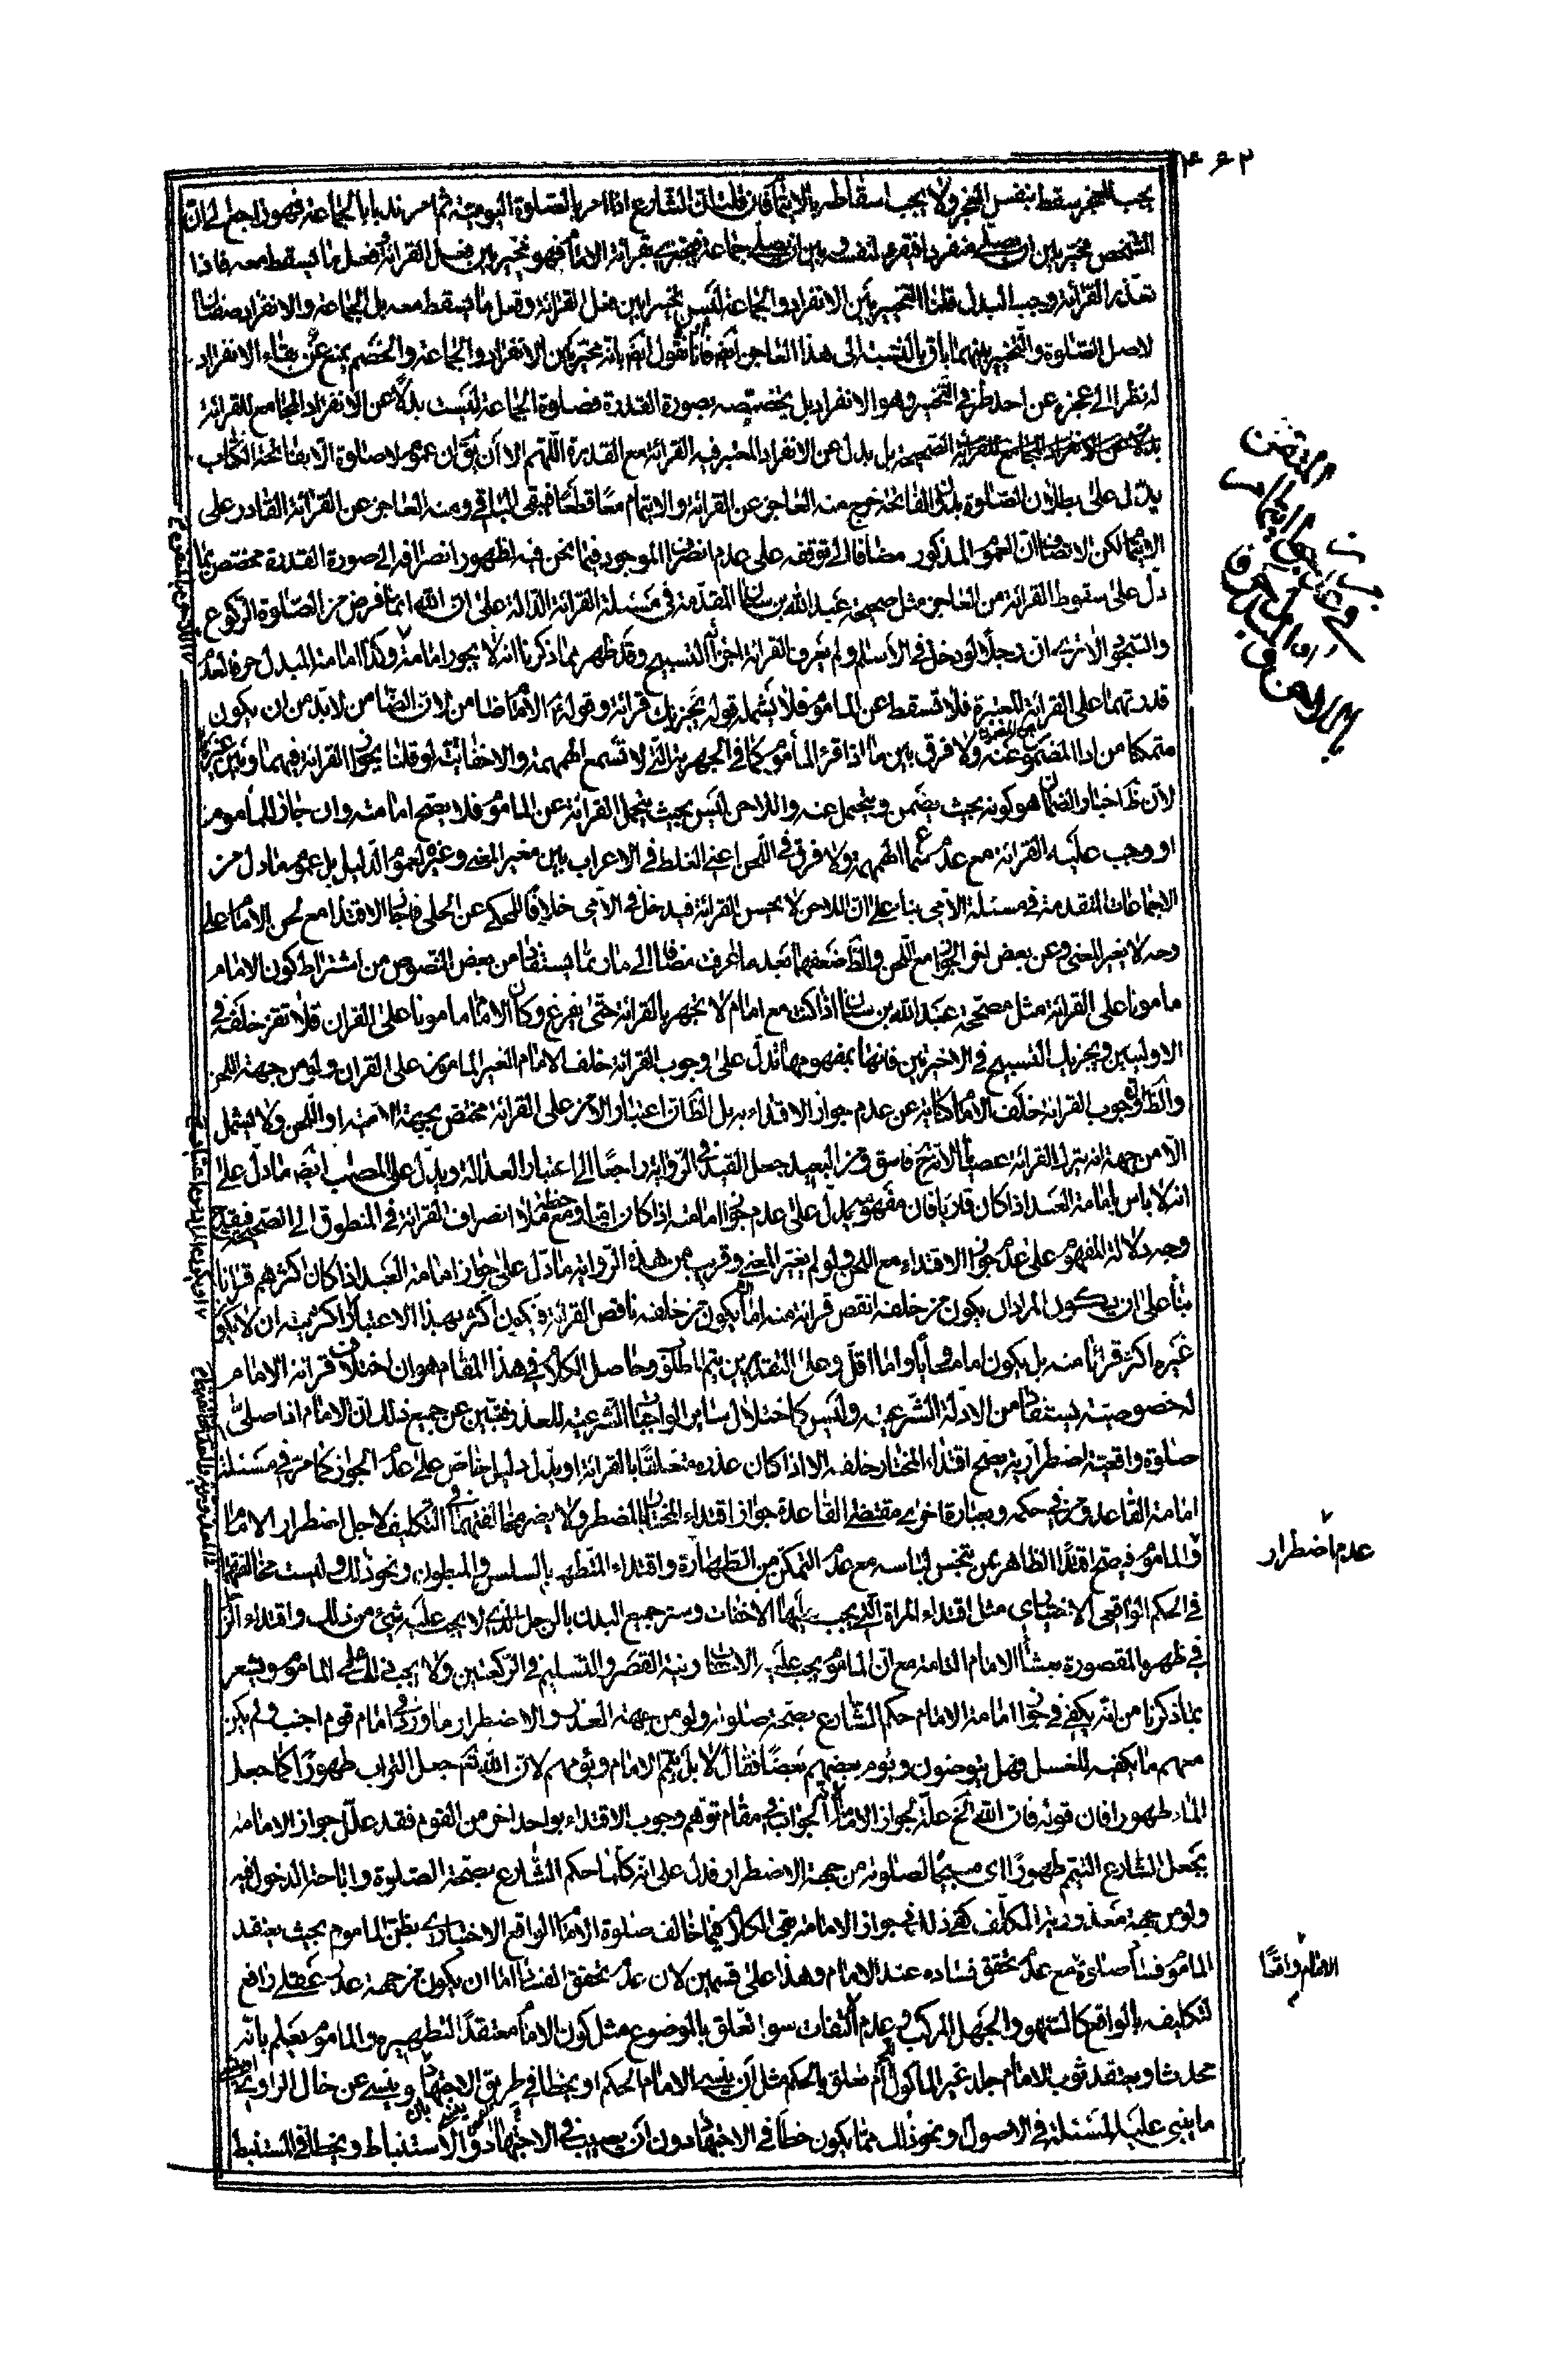 يجب العجز سقط بنفس العجز ولا يجب اسقاطه بالايتمام فان قلت ان الشارع اذا امر بالصلوة اليومية ثم امر ندبا بالجماعة فهو راجع الى ان
الشخص مخير بين ان يصلى منفردا فيقرء لنفسه وبين ان يصلى جماعة فيجتزى بقرائة الامام فهو مخير بين فعل القرائة وفعل ما يسقط معه فاذا
تعذر القرائة وجب البدل قلنا التخيير بين الانفراد والجماعة ليس تخييرا بين فعل القرائة وفعل ما يسقط معه بل الجماعة والانفراد صفتان
لاصل الصلوة والتخيير بينهما باق بالنسبة الى هذا العاجز ايضا فانا نقول ايضا بانه مخير بين الانفراد والجماعة والخصم يمنع عن بقاء الانفراد
له نظرا الى عجزه عن احد طرفى التخيير وهو الانفراد بل يخصصه بصورة القدرة فصلوة الجماعة ليست بدلا عن الانفراد المجامع للقرائة
بل بدل عن الانفراد المعتبر فيه القرائة مع القدرة اللهم الا ان يق ان عموم لا صلوة الا بفاتحة الكتاب
يدل على بطلان الصلوة بدون الفاتحة خرج منه العاجز عن القرائة والايتمام معا قطعا فيبقى الباقى ومنه العاجز عن القرائة القادر على
الايتمام لكن الانصاف ان العموم المذكور مضافا الى توقفه على عدم انصراف الموجود فيما نحن فيه لظهور انصرافه الى صورة القدرة مختص بما
دل على سقوط القرائة من العاجز مثل صحيحة عبد الله بن سنان المتقدمة فى مسئلة القرائة الدالة على ان الله انما فرض من الصلوة الركوع
والسجود الا ترى ان رجلا لو دخل فى الاسلام ولم يعرف القرائة اجزأه التسبيح وقد ظهر مما ذكرنا انه لا يجوز امامته وكذا امامة المبدل حرفا لعدم
قدرتهما على القرائة المعتبرة فلا تسقط عن الماموم فلا يشمله قوله يجزيك قرائته وقوله الامام ضامن لان الضامن لا بد من ان يكون
متمكنا من اداء المضمون عنه ولا فرق بين ما اذا قرء المأموم كما فى الجهرية التى لا تسمع الهمهمة والاخفاتية لو قلنا بجواز القرائة فيهما وبين غيره
لان ظ اخبار الضمان هو كونه بحيث يضمن ويتحمل عنه واللاحن ليس بحيث يتحمل القرائة عن الماموم فلا يصح امامته وان جاز للمأموم
او وجب عليه القرائة مع عدم سماع الهمهمة ولا فرق فى اللحن اعنى الغلط فى الاعراب بين مغير المعنى وغيره لعموم الدليل بل عموم ما دل من
الاجماعات المتقدمة فى مسئلة الامى بناء على ان اللاحن لا يحسن القرائة فيدخل فى الامى خلافا للمحكى عن الحلى فاجاز الاقتداء مع لحن الامام على
وجه لا يغير المعنى وعن بعض اخر الجواز مع اللحن والظ ضعفهما بعد ما عرفت مضافا الى ما ربما يستفاد من بعض النصوص من اشتراط كون الامام
مامونا على القرائة مثل مصححة عبد الله بن سنان اذا كنت مع امام لا تجهر بالقرائة حتى يفرغ وكان الامام مامونا على القران فلا تقرء خلفه فى
الاوليين ويجزيك التسبيح فى الاخيرتين فانها بمفهومها تدل على وجوب القرائة خلف الامام الغير المامون على القران ولو من جهة اللحن
والظ ان وجوب القرائة خلف الامام كناية عن عدم جواز الاقتداء به بل الظ ان اعتبار الامن على القرائة مختص بجهة الامية او اللحن ولا يشمل
الا من جهة انه يترك القرائة عصيانا لانه ح فاسق ومن البعيد جعل القيد فى الرواية راجعا الى اعتبار العدالة ويدل على المطلب ايضا ما دل على
انه لا باس بامامة العبد اذا كان قاريا فان مفهومه يدل على عدم جواز امامته اذا كان اميا ومع ملاحظة انصراف القرائة فى المنطوق الى الصحيح فيقدح
وجه دلالة المفهوم على عدم جواز الاقتداء مع اللحن ولو لم يغير المعنى وقريب من هذه الرواية ما دل على جواز امامة العبد اذا كان اكثرهم قرانا
بناء على ان يكون المراد ان يكون من خلفه انقص قرائة منه اما ان يكون من خلفه ناقص القرائة فيكون اكثر بهذا الاعتبار اكثريته ان لا يكون
غيره اكثر قرانا منه بل يكون اما مساويا واما اقل وعلى التقديرين يتم المطلوب وحاصل الكلام فى هذا المقام هو ان اختلال قرائة الامام
له خصوصية يستفاد من الادلة الشرعية وليس كاختلال سائر الواجبات الشرعية للعذر فتبين عن جميع ذلك ان الامام اذا صلى
صلوة واقعية اضطرارية يصح اقتداء المختار خلفه الا اذا كان عذره متعلقا بالقرائة او يدل دليل خاص على عدم الجواز كما مر فى مسئلة
امامة القاعد ومن فى حكمه وبعبارة اخرى مقتضى القاعدة جواز اقتداء المختار بالمضطر ولا يضر مخالفتهما فى التكليف لاجل اضطرار الامام
والماموم فيصح اقتداء الطاهر بمن تنجس لباسه مع عدم التمكن من الطهارة واقتداء المتطهر بالسلس والمبطون ونحو ذلك وليست مخالفتهما
فى الحكم الواقعى الاختيارى مثل اقتداء المرأة التى يجب عليها الاخفات وستر جميع البدن بالرجل الذى لا يجب عليه شيء من ذلك واقتداء
فى ظهره المقصورة بعشاء الامام التامة مع ان الماموم يجب عليه نية القصر والتسليم فى الركعتين ولا يجب ذلك على المأموم ويشعر
بما ذكرنا من انه يكفى فى جواز امامة الامام حكم الشارع بصحة صلوته ولو من جهة العذر والاضطرار ما ورد فى امام قوم اجنب ولم يكن
معهم ما يكفيه للغسل فهل يتوضون ويؤم بعضهم بعضا فقال لا بل يتيمم الامام ويؤمهم لان الله تعالى جعل التراب طهورا كما جعل
الماء طهورا فان قوله فان الله الخ علة لجواز الامامة لان الجواب فى مقام توهم وجوب الاقتداء بواحد اخر من القوم فقد علل جواز الامامة
بجعل الشارع التيمم طهورا اى مبيحا لصلوته من جهة الاضطرار فدل على انه كلما حكم الشارع بصحة الصلوة واباحة الدخول فيه
ولو من جهة معذورية المكلف كفى ذلك فى جواز الامامة بقى الكلام فيما خالف صلوة الامام الواقع الاختيارى بظن الماموم بحيث يعتقد
الماموم فساد صلوته مع عدم تحقق فساده عند الامام وهذا على قسمين لان عدم تحقق الفساد اما ان يكون من جهة عذر عقلى رافع
لتكليفه بالواقع كالسهو والجهل المركب وعدم التفات سواء تعلق بالموضوع مثل كون الامام معتقدا لتطهيره والماموم يعلم بانه
محدث او يعتقد ثوب الامام جلد غير الماكول ام تعلق بالحكم مثل ان ينسى الامام الحكم او يخطا فى طريق الاجتهاد وينسى عن حال الراوى
ما ينبى عليه المسئلة فى الاصول او نحو ذلك مما يكون خطأ فى الاجتهاد دون ان يصيب فى الاجتهاد والاستنباط ويخطا فى المستنبط
عدم اضطرار
الامام واقعا